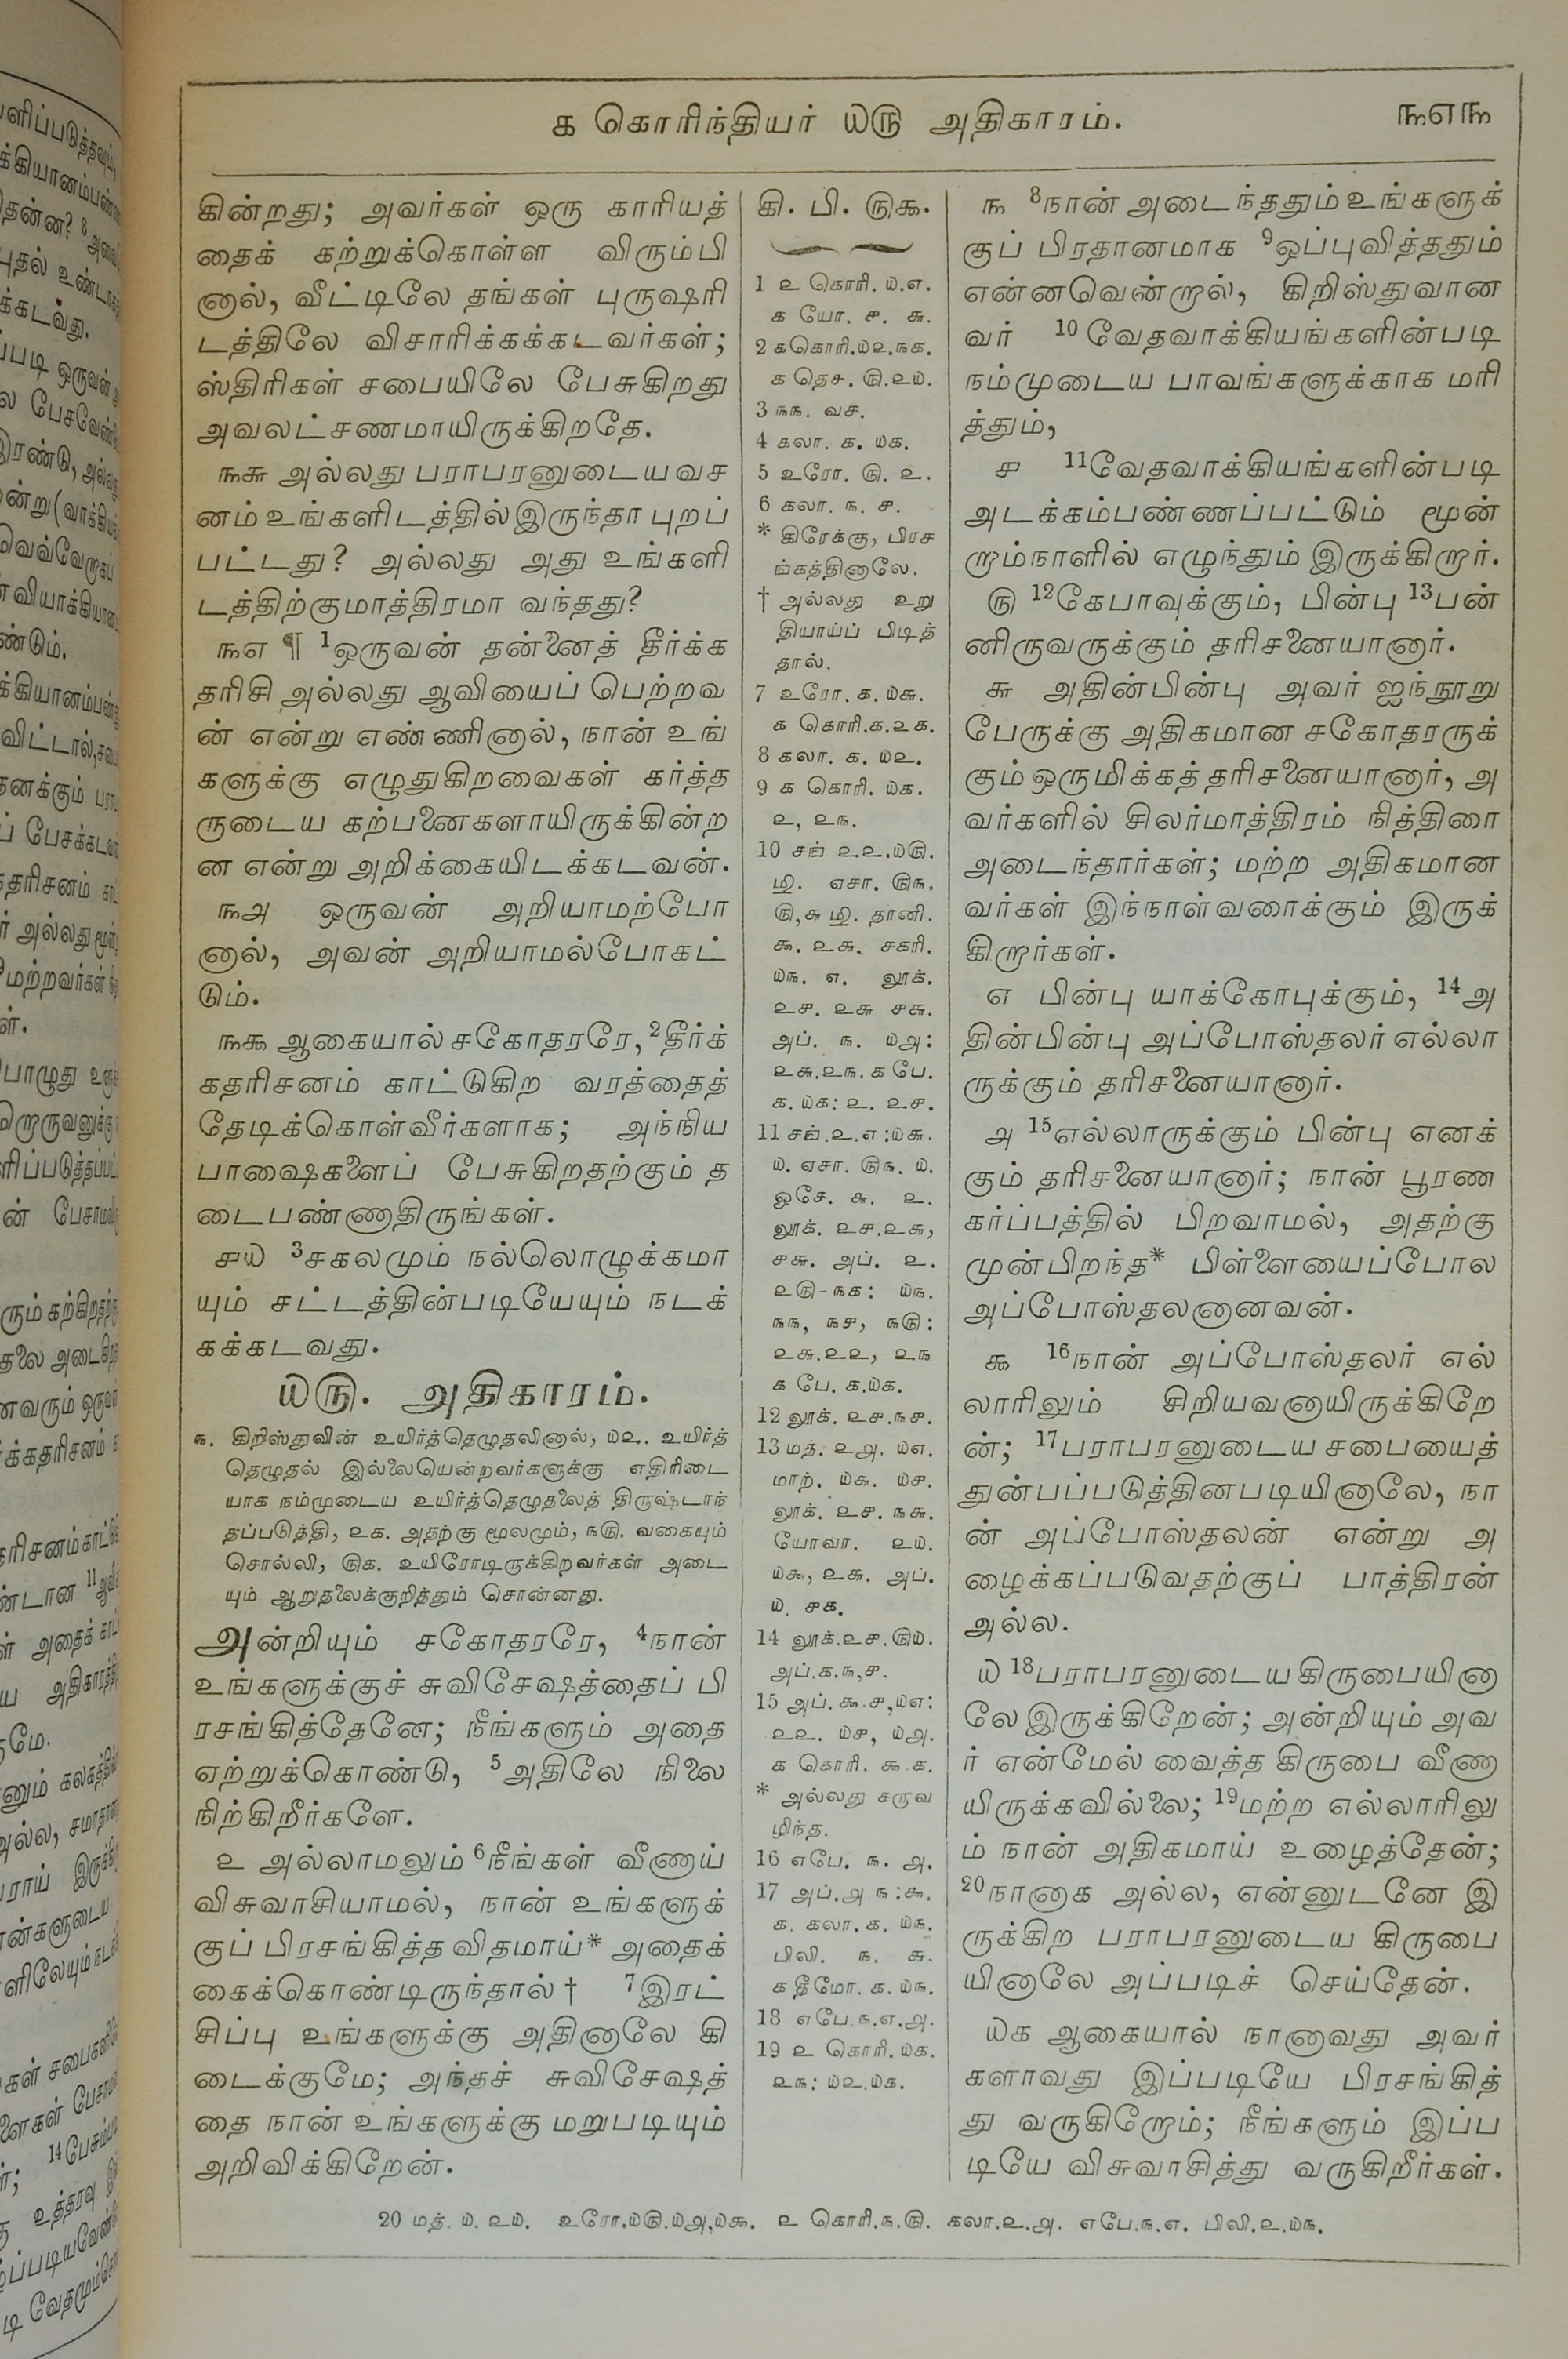 ௧ கொரிந்தியர் ௰௫ அதிகாரம்.
௩௭௩
கின்றது; அவர்கள் ஒரு காரியத்
தைக் கற்றுக்கொள்ள விரும்பி
னால், வீட்டிலே தங்கள் புருஷரி
டத்திலே விசாரிக்கக்கடவர்கள்;
ஸ்திரிகள் சபையிலே பேசுகிறது
அவலட்சணமாயிருக்கிறதே.
௩௬ அல்லது பராபரனுடையவச
னம் உங்களிடத்தில்இருந்தா புறப்
பட்டது? அல்லது அது உங்களி
டத்திற்குமாத்திரமா வந்தது?
௩௭ ¶ 1ஒருவன் தன்னைத் தீர்க்க
தரிசி அல்லது ஆவியைப் பெற்றவ
ன் என்று எண்ணினால், நான் உங்
களுக்கு எழுதுகிறவைகள் கர்த்த
ருடைய கற்பனைகளாயிருக்கின்ற
ன என்று அறிக்கையிடக்கடவன்.
௩௮ ஒருவன் அறியாமற்போ
னால், அவன் அறியாமல்போகட்
டும்.
௩௯ ஆகையால் சகோதரரே, 2தீர்க்
கதரிசனம் காட்டுகிற வரத்தைத்
தேடிக்கொள்வீர்களாக; அந்நிய
பாஷைகளைப் பேசுகிறதற்கும் த
டைபண்ணாதிருங்கள்.
௪௰ 3சகலமும் நல்லொழுக்கமா
யும் சட்டத்தின்படியேயும் நடக்
கக்கடவது.
௰௫. அதிகாரம்.
௩. கிறிஸ்துவின் உயிர்த்தெழுதலினால், ௰௨. உயிர்த்
தெழுதல் இல்லையென்றவர்களுக்கு எதிரிடை
யாக நம்முடைய உயிர்த்தெழுதலைத் திருஷ்டாந்
தப்படுத்தி, ௨௧. அதற்கு மூலமும், ௩௫. வகையும்
சொல்லி, ௫௧. உயிரோடிருக்கிறவர்கள் அடை
யும் ஆறுதலைக்குறித்தும் சொன்னது.
அன்றியும் சகோதரரே, 4நான்
உங்களுக்குச் சுவிசேஷத்தைப் பி
ரசங்கித்தேனே; நீங்களும் அதை
ஏற்றுக்கொண்டு, 5அதிலே நிலை
நிற்கிறீர்களே.
௨ அல்லாமலும் 6நீங்கள் வீணாய்
விசுவாசியாமல், நான் உங்களுக்
குப் பிரசங்கித்த விதமாய்* அதைக்
கைக்கொண்டிருந்தால் † 7இரட்
சிப்பு உங்களுக்கு அதினாலே கி
டைக்குமே; அந்தச் சுவிசேஷத்
தை நான் உங்களுக்கு மறுபடியும்
அறிவிக்கிறேன்.
கி. பி. ௫௯.
1 ௨ கொரி. ௰.௭.
௧ யோ. ௪. ௬.
2 ௧கொரி.௰௨.௩௧.
௧ தெச. ௫.௨௰.
3 ௩௩. வச.
4 கலா. ௧. ௰௧.
5 உரோ. ௫. ௨.
6 கலா. ௩. ௪.
* கிரேக்கு, பிரச
ங்கத்தினாலே.
† அல்லது உறு
தியாய்ப் பிடித்
தால்.
7 உரோ. ௧. ௰௬.
௧ கொரி.௧.௨௧.
8 கலா. ௧. ௰௨.
9 ௧ கொரி. ௰௧.
௨, ௨௩.
10 சங் ௨௨.௰௫.
மி. ஏசா. ௫௩.
௫,௬ மி. தானி.
௯. ௨௬. சகரி.
௰௩. ௭. லூக்.
௨௪. ௨௬ ௪௬.
அப். ௩. ௰௮:
௨௬.௨௩. ௧ பே.
௧. ௰௧: ௨. ௨௪.
11 சங்.௨.௭:௰௬.
௰. ஏசா. ௫௩. ௰.
ஓசே. ௬. ௨.
லூக். ௨௪.௨௬,
௪௬. அப். ௨.
௨௫-௩௧: ௰௩.
௩௩, ௩௪, ௩௫:
௨௬.௨௨, ௨௩
௧ பே. ௧.௰௧.
12 லூக். ௨௪.௩௪.
13 மத். ௨௮. ௰௭.
மாற். ௰௬. ௰௪.
லூக். ௨௪. ௩௬.
யோவா. ௨௰.
௰௯, ௨௬. அப்.
௰. ௪௧.
14 லூக்.௨௪.௫௰.
அப்.௧.௩,௪.
15 அப். ௯.௪,௰௭:
௨௨. ௰௪, ௰௮.
௧ கொரி. ௯.௧.
* அல்லது கருவ
ழிந்த.
16 எபே. ௩. ௮.
17 அப்.௮ ௩:௯.
௧. கலா. ௧. ௰௩.
பிலி. ௩. ௬.
௧ தீமோ. ௧. ௰௩.
18 எபே.௩.௭.௮.
19 ௨ கொரி.௰௧.
௨௩: ௰௨.௰௧.
௩ 8நான் அடைந்ததும் உங்களுக்
குப் பிரதானமாக 9ஒப்புவித்ததும்
என்னவென்றால், கிறிஸ்துவான
வர் 10வேதவாக்கியங்களின்படி
நம்முடைய பாவங்களுக்காக மரி
த்தும்,
௪ 11வேதவாக்கியங்களின்படி
அடக்கம்பண்ணப்பட்டும் மூன்
றாம்நாளில் எழுந்தும் இருக்கிறார்.
௫ 12கேபாவுக்கும், பின்பு 13பன்
னிருவருக்கும் தரிசனையானார்.
௬ அதின்பின்பு அவர் ஐந்நூறு
பேருக்கு அதிகமான சகோதரருக்
கும் ஒருமிக்கத் தரிசனையானார், அ
வர்களில் சிலர்மாத்திரம் நித்திரை
அடைந்தார்கள்; மற்ற அதிகமான
வர்கள் இந்நாள்வரைக்கும் இருக்
கிறார்கள்.
௭ பின்பு யாக்கோபுக்கும், 14அ
தின்பின்பு அப்போஸ்தலர் எல்லா
ருக்கும் தரிசனையானார்.
௮ 15எல்லாருக்கும் பின்பு எனக்
கும் தரிசனையானார்; நான் பூரண
கர்ப்பத்தில் பிறவாமல், அதற்கு
முன்பிறந்த* பிள்ளையைப்போல
அப்போஸ்தலனானவன்.
௯ 16நான் அப்போஸ்தலர் எல்
லாரிலும் சிறியவனாயிருக்கிறே
ன்; 17பராபரனுடைய சபையைத்
துன்பப்படுத்தினபடியினாலே, நா
ன் அப்போஸ்தலன் என்று அ
ழைக்கப்படுவதற்குப் பாத்திரன்
அல்ல.
௰ 18பராபரனுடைய கிருபையினா
லே இருக்கிறேன்; அன்றியும் அவ
ர் என்மேல் வைத்த கிருபை வீணா
யிருக்கவில்லை; 19மற்ற எல்லாரிலு
ம் நான் அதிகமாய் உழைத்தேன்;
20நானாக அல்ல, என்னுடனே இ
ருக்கிற பராபரனுடைய கிருபை
யினாலே அப்படிச் செய்தேன்.
௰௧ ஆகையால் நானாவது அவர்
களாவது இப்படியே பிரசங்கித்
து வருகிறோம்; நீங்களும் இப்ப
டியே விசுவாசித்து வருகிறீர்கள்.
20 மத். ௰. ௨௰. உரோ.௰௫.௰௮,௰௯. ௨ கொரி.௩.௫. கலா.௨.௮. எபே.௩.௭. பிலி.௨.௰௩.